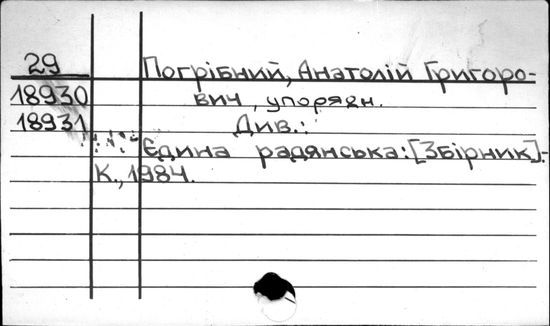 29 Погрібний, Анатолій Григоро-
18930 вич, упорядн.
18931 Див.:
Єдина радянська: [Збірник].-
К., 1984.